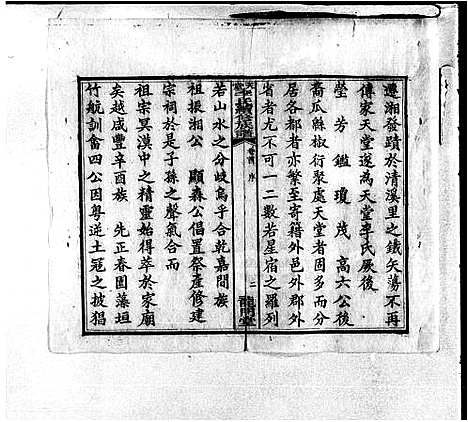 遷湘發蹟於清溪里之鐵矢蕩不再
傳家天堂遂為天堂李氏厥後
瑩芳鑑瓊茂高六公後
裔瓜縣椒衍聚處天堂者固多而分
居各都者亦繁至寄籍外邑外郡外
省者尤不可一二數若星宿之羅列
李氏續修族譜
卷首 序
二
龍門堂
若山水之分岐烏乎合乾嘉間族
祖振湘公 顯森公倡置祭產修建
宗祠於是子孫之聲氣合而
祖宗冥漠中之精靈始得萃於家廟
矣越咸豐辛酉族 先正春圃藻垣
竹航訓畬四公因粵逆土寇之披猖